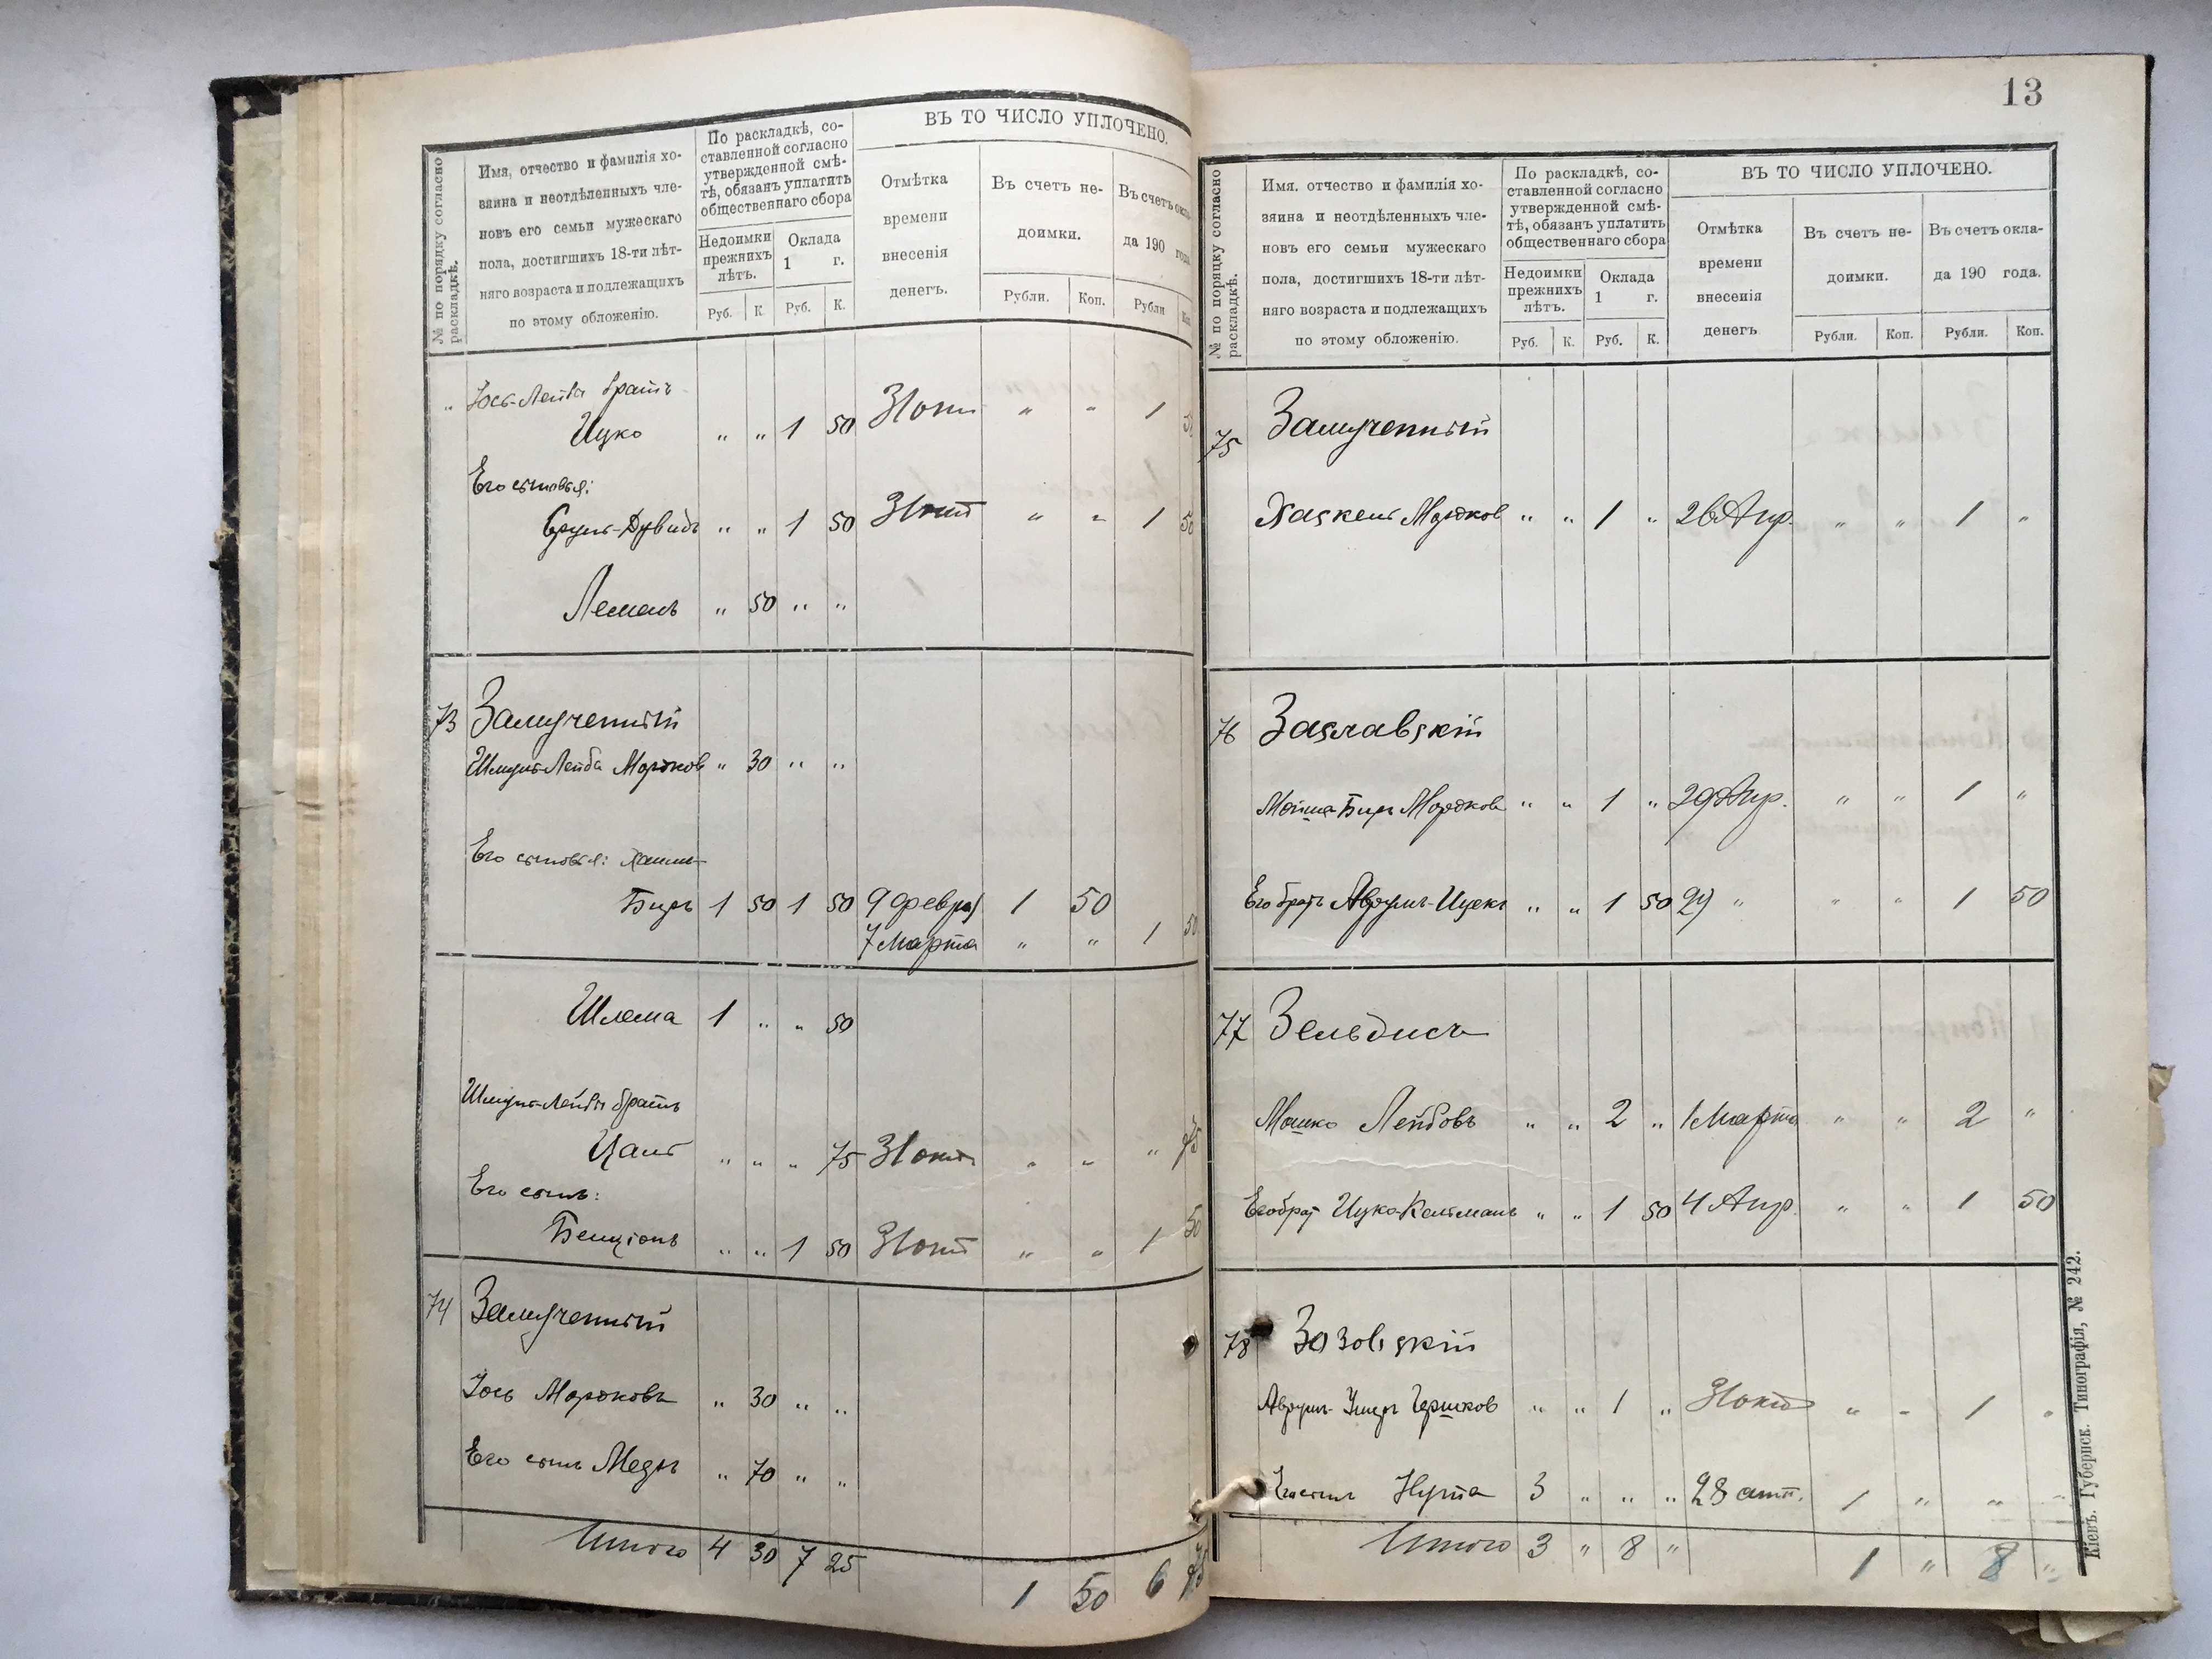 № по порядку согласно
раскладкѣ.
Имя, отчество и фамилія хо-
зяина и неотдѣленныхъ чле-
новъ его семьи мужескаго
пола, достигшихъ 18-ти лѣт-
няго возраста и подлежащихъ
по этому обложенію.
По раскладкѣ, со-
ставленной согласно
утвержденной смѣ-
тѣ, обязанъ уплатить
общественнаго сбора
Недоимки
прежнихъ
лѣтъ.
Оклада
1 г.
Руб. К. Руб. К.
ВЪ ТО ЧИСЛО УПЛОЧЕНО.
Отмѣтка
времени
внесенія
денегъ.
Въ счетъ не-
доимки.
Въ счетъ окла-
да 190 года
Рубли. Коп. Рубли Коп.
„ Іось-Лейба братъ
Ицко „ „ 1 50 31 окт „ „ 1 50
Его сыновья:
Сруль-Дувидъ „ „ 1 50 31 окт „ „ 1 50
Лемель „ 50 „ „
73 Замученный
Шмуль-Лейба Мордков „ 30 „ „
Его сыновья: Хаимъ-
Беръ 1 50 1 50 9 Февр 1 50
7 Марта „ „ 1 50
Шлема 1 „ „ 50
Шмуль-Лейбы братъ
Цаль „ „ „ 75 31 окт „ „ „ 75
Его сынъ:
Бенціонъ „ „ 1 50 31 окт „ „ 1 50
74 Замученный
Іось Мордковъ „ 30 „ „
Его сынъ Мееръ „ 70 „ „
Итого 4 30 7 25
1 50 6 75
13
№ по порядку согласно
раскладкѣ.
Имя. отчество и фамилія хо-
зяина и неотдѣленныхъ чле-
новъ его семьи мужескаго
пола, достигшихъ 18-ти лѣт-
няго возраста и подлежащихъ
по этому обложенію.
По раскладкѣ, со-
ставленной согласно
утвержденной смѣ-
тѣ, обязанъ уплатить
общественнаго сбора
Недоимки
прежнихъ
лѣтъ.
Оклада
1 г.
Руб. К. Руб. К.
ВЪ ТО ЧИСЛО УПЛОЧЕНО.
Отмѣтка
времени
внесенія
денегъ
Въ счетъ не-
доимки.
Въ счетъ окла-
да 190 года.
Рубли. Коп. Рубли. Коп.
75 Замученный
Хаскель Мордков „ „ 1 „ 26 Апр. „ „ 1 „
76 Заславскій
Мойша-Беръ Мордков „ „ 1 „ 29 Апр. „ „ 1 „
Его братъ Аврумъ-Ицекъ „ „ 1 50 29 „ „ „ 1 50
77 Зельдисъ
Мошко Лейбовъ „ „ 2 „ 1 Марта „ „ 2 „
Его брат Ицко-Кельманъ „ „ 1 50 4 Апр. „ „ 1 50
78 Зозовскій
Аврумъ-Ушеръ Гершков „ „ 1 „ 31 окт „ „ 1 „
Его сынъ Нута 3 „ „ „ 28 1 „ „ „
Итого 3 „ 8 „ 1 „ 8 „
Кіевъ. Губернск. Типографія, № 242.